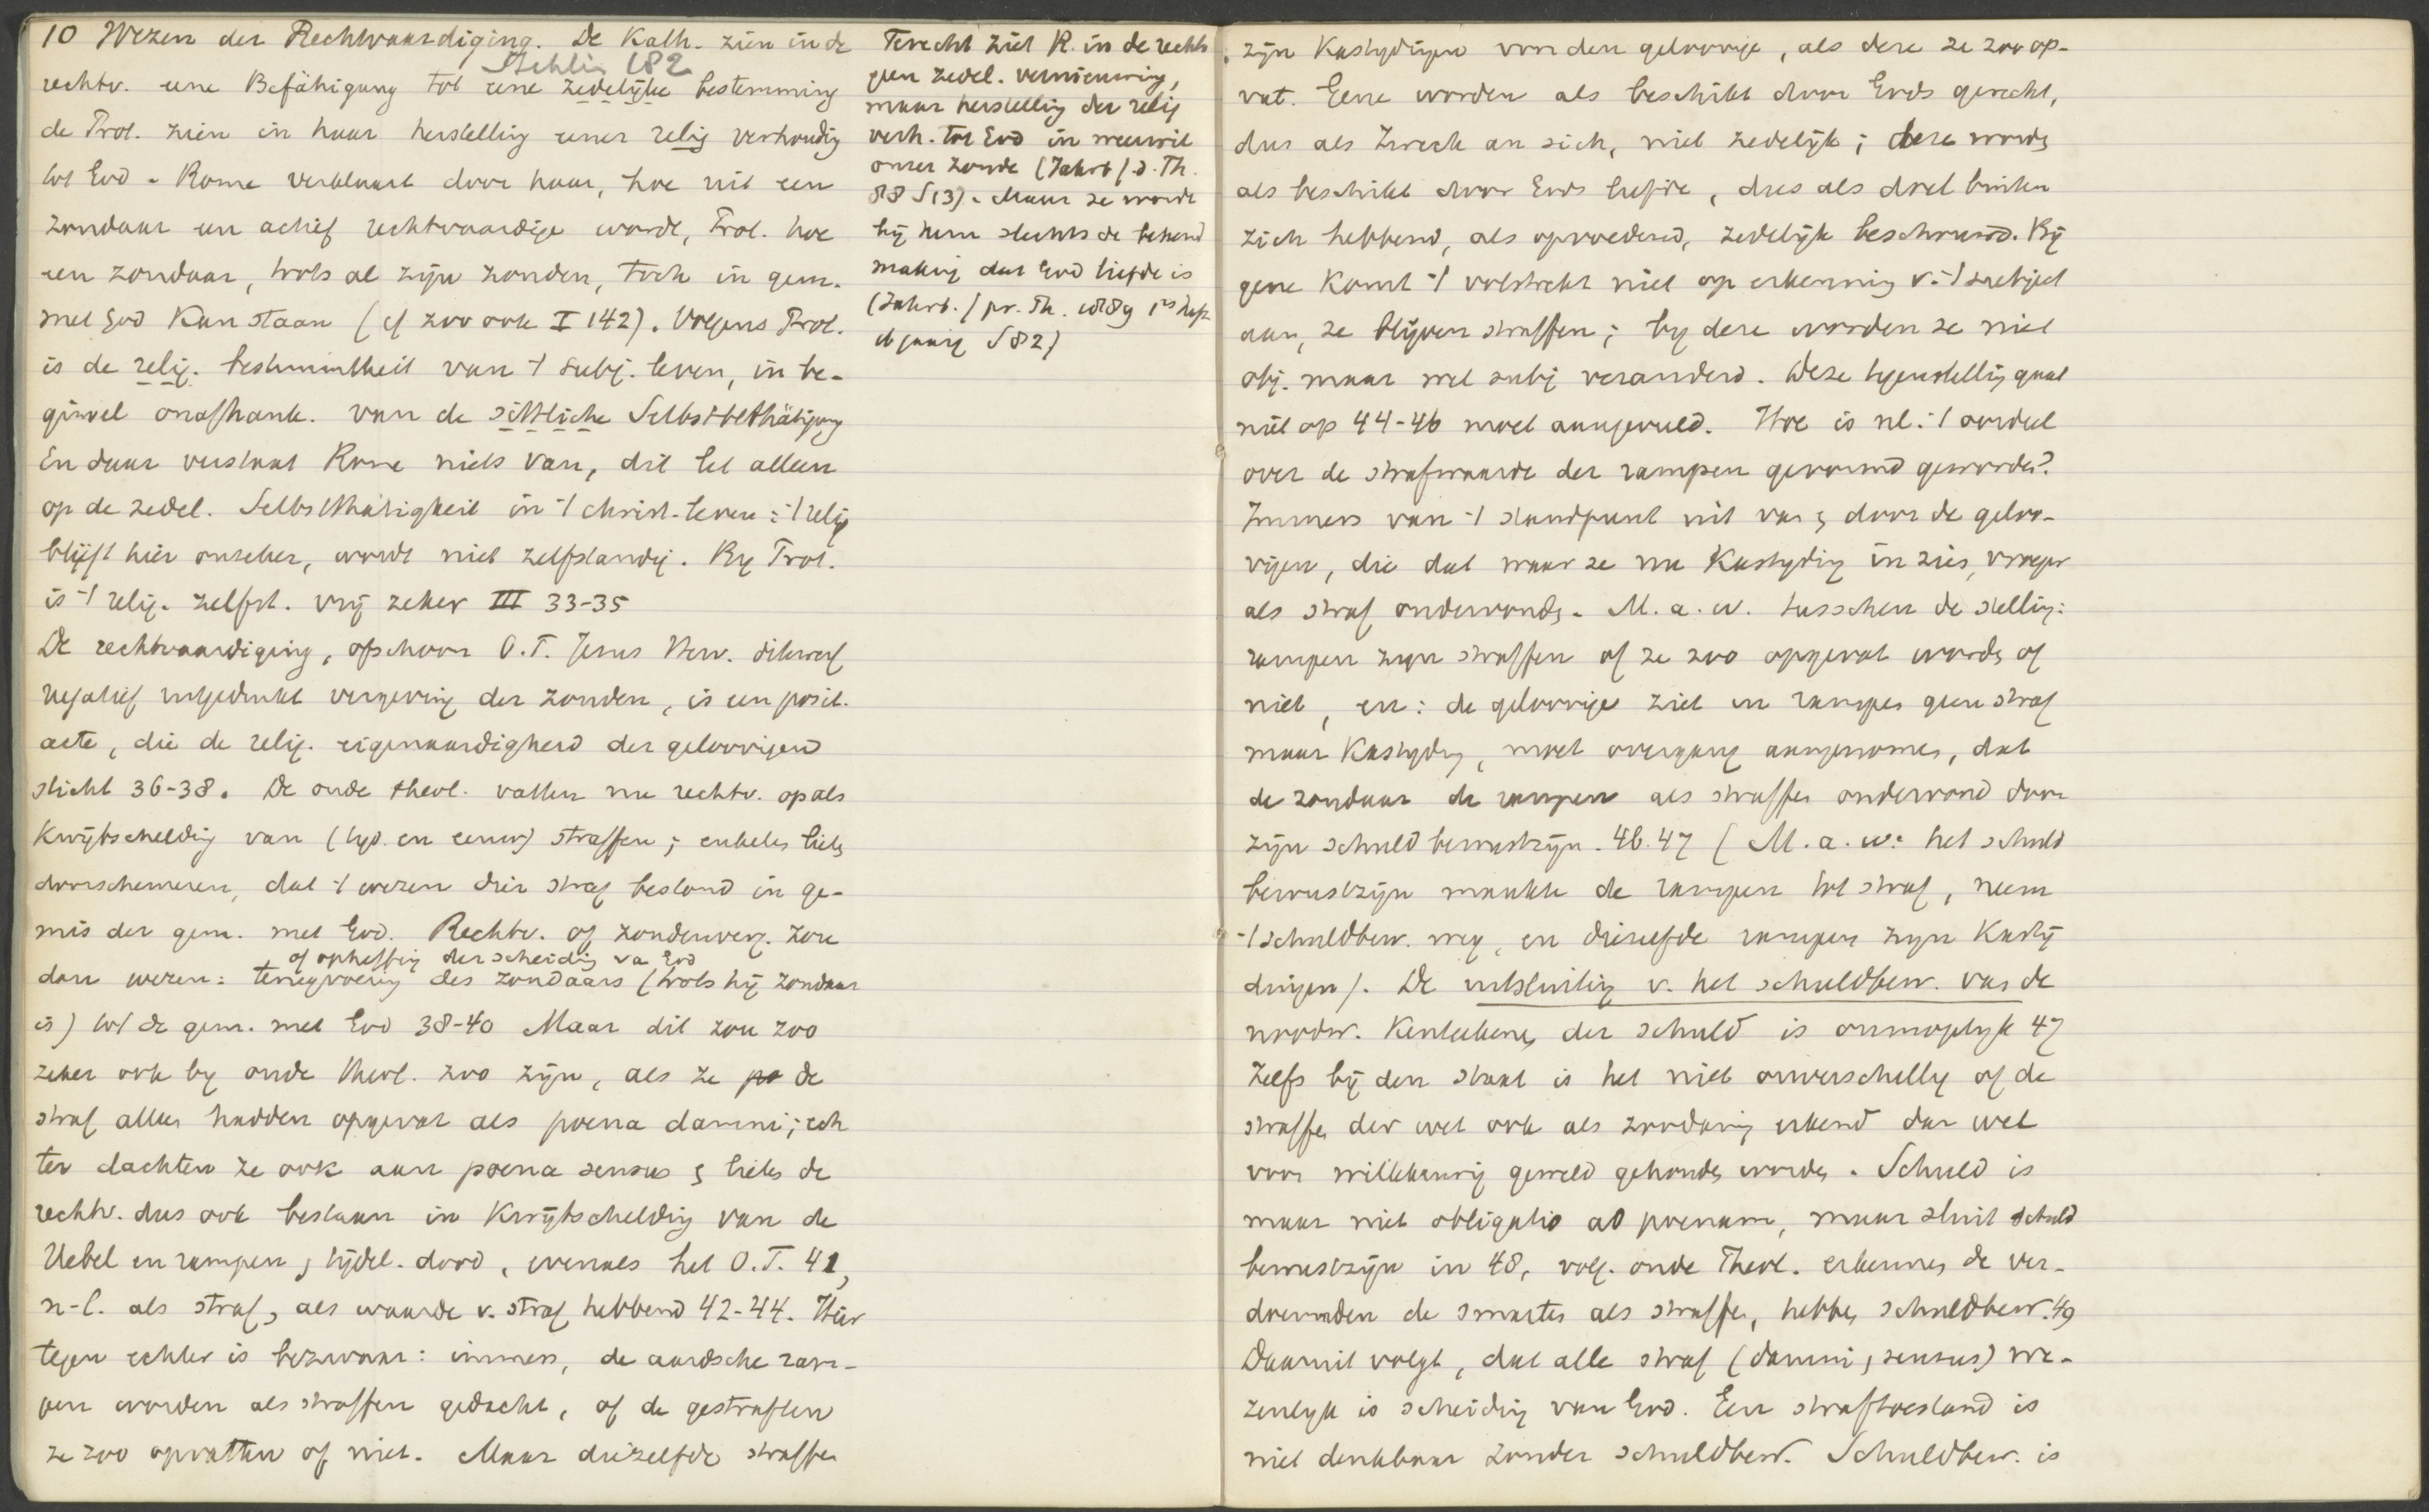 10 Wezen der Rechtvaardiging. De Kath. zien in de
Stähelin 182
rechtv. eene Befähigung tot eene zedelijke bestemming
de Prot. zien in haar herstelling eener relig verhoudig
tot God. Rome verklaart door haar, hoe uit een
zondaar een actief rechtvaardige wordt, Prot. hoe
een zondaar, trots al zijn zonden, toch in gem.
met God kan staan (cf zoo ook I 142). Volgens Prot.
is de relig. bestimmtheit van 't subj. leven, in be-
ginsel onafhank. van de sittliche Selbstbethätigung
En daar verstaat Rome niets van, dit let alleen
op de zedel. Selbstthätigkeit in 't christ. leven: 't relig
blijft hier onzeker, wordt niet zelfstandig. By Prot.
is 't relig. zelfst. vrij zeker III 33-35
De rechtvaardiging, ofschoon O.T. Jezus Verz. dikwerf
negatief uitgedrukt vergeving der zonden, is een posit.
acte, die de relig. eigenaardigheid der geloovigen
sticht 36-38. De oude theol. vatten nu rechtv. op als
kwijtschelding van (tyd. en eeuw) straffen; enkelen lieten
doorschemeren, dat 't wezen dier straf bestond in ge-
mis der gem. met God. Rechtv. of zondenverg. zou
of opheffing der scheidig va God
dan wezen: terugvoering des zondaars (trots hij zondaar
is) tot de gem. met God 38-40 Maar dit zou zoo
zeker ook by oude theol. zoo zijn, als ze de
straf alleen hadden opgevat als poena damni; ech
ter dachten ze ook aan poena sensus & lieten de
rechtv. dus ook bestaan in kwijtschelding van de
Uebel en rampen, tijdel. dood, evenals het O.T. 41,
n-l. als straf, als waarde v. straf hebbend 42-44. Hier
tegen echter is bezwaar: immers, de aardsche ram-
pen worden als straffen gedacht, of de gestraften
ze zoo opvatten of niet. Maar diezelfde straffen
Terecht ziet R. in de rechtv
geen zedel. vernieuwing,
maar herstellig der relig
verh. tot God in weerwil
onzer zonde (Jahrb f. d. Th.
88 S 13). Maar ze wordt
bij hem slechts de bekend
making dat God liefde is
(Jahrb. f pr. Th. 1889 1es heft
S 82)
zijn Kastydingen van den geloovige, als deze ze zoo op-
vat. Eene worden als beschikt door Gods gerecht,
dus als Zweck an sich, niet zedelijk; deze worden
als beschikt door Gods liefde, dus als doel buiten
zich hebbend, als opvoedend, zedelijk beschouwd. By
gene komt 't volstrekt niet op erkenning v. 't subject
aan, ze blijven straffen; by deze worden ze niet
obj. maar wel subj veranderd. Deze tegenstellig gaat
niet op 44-46 moet aangevuld. Hoe is nl. 't oordeel
over de strafwaarde der rampen gevormd geworden?
Immers van 't standpunt uit van & door de geloo-
vigen, die dat waar ze nu Kastyding in zien, vroeger
als straf ondervonden. M.a.w. tusschen de stelling:
rampen zyn straffen of ze zoo opgevat worden of
niet, en: de geloovige ziet in rampen geen straf
maar Kastyding, moet overgang aangenomen, dat
de zondaar de rampen als straffen ondervond door
zijn schuldbewustzyn. 46.47 (M.a.w: het schuld
bewustzijn maakte de rampen tot straf, neem
't schuldbew. weg, en diezelfde rampen zijn Kastij
dingen). De uitsluiting v. het schuldbew. van de
noodw. Kenteekenen der schuld is onmogelyk 47
Zelfs bij den staat is het niet onverschillig of de
straffen der wet ook als zoodanig erkend dan wel
voor willekeurig geweld gehouden worden. Schuld is
maar niet obligatio ad poenam, maar sluit schuld
bewustzijn in 48, volg. oude Theol. erkennen de ver-
doemden de smarten als straffen, hebben schuldbew. 49
Daaruit volgt, dat alle straf (damni, sensus) we-
zenlyk is scheiding van God. Een straftoestand is
niet denkbaar zonder schuldbew. Schuldbew. is